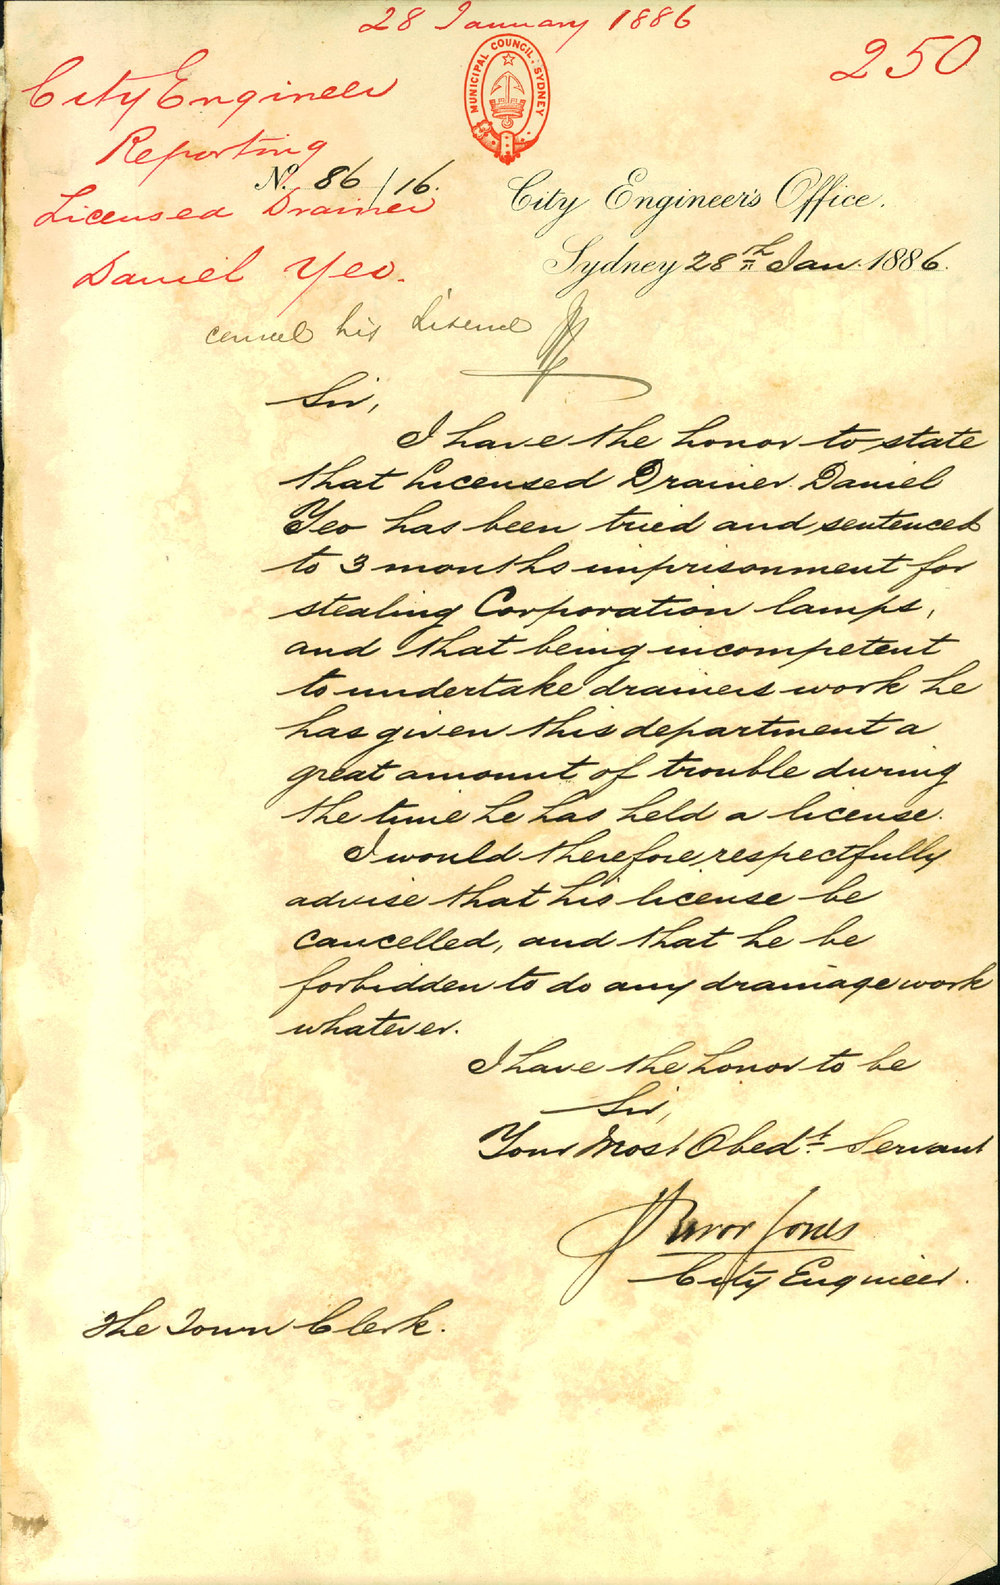 28 January 1886
250
MUNICIPAL COUNCIL. SYDNEY
City Engineer
Reporting
No. 86/16.
Licensed Drainer
Daniel Yeo.
City Engineer's Office.
Sydney 28th Jan. 1886.
cancel his License
Sir,
I have the honor to state
that Licensed Drainer Daniel
Yeo has been tried and sentenced
to 3 months imprisonment for
stealing Corporation lamps,
and that being incompetent
to undertake drainers work he
has given this department a
great amount of trouble during
the time he has held a license.
I would therefore respectfully
advise that his license be
cancelled, and that he be
forbidden to do any drainage work
whatever.
I have the honor to be
Sir,
Your Most Obedt. Servant
Trevor Jones
City Engineer.
The Town Clerk.